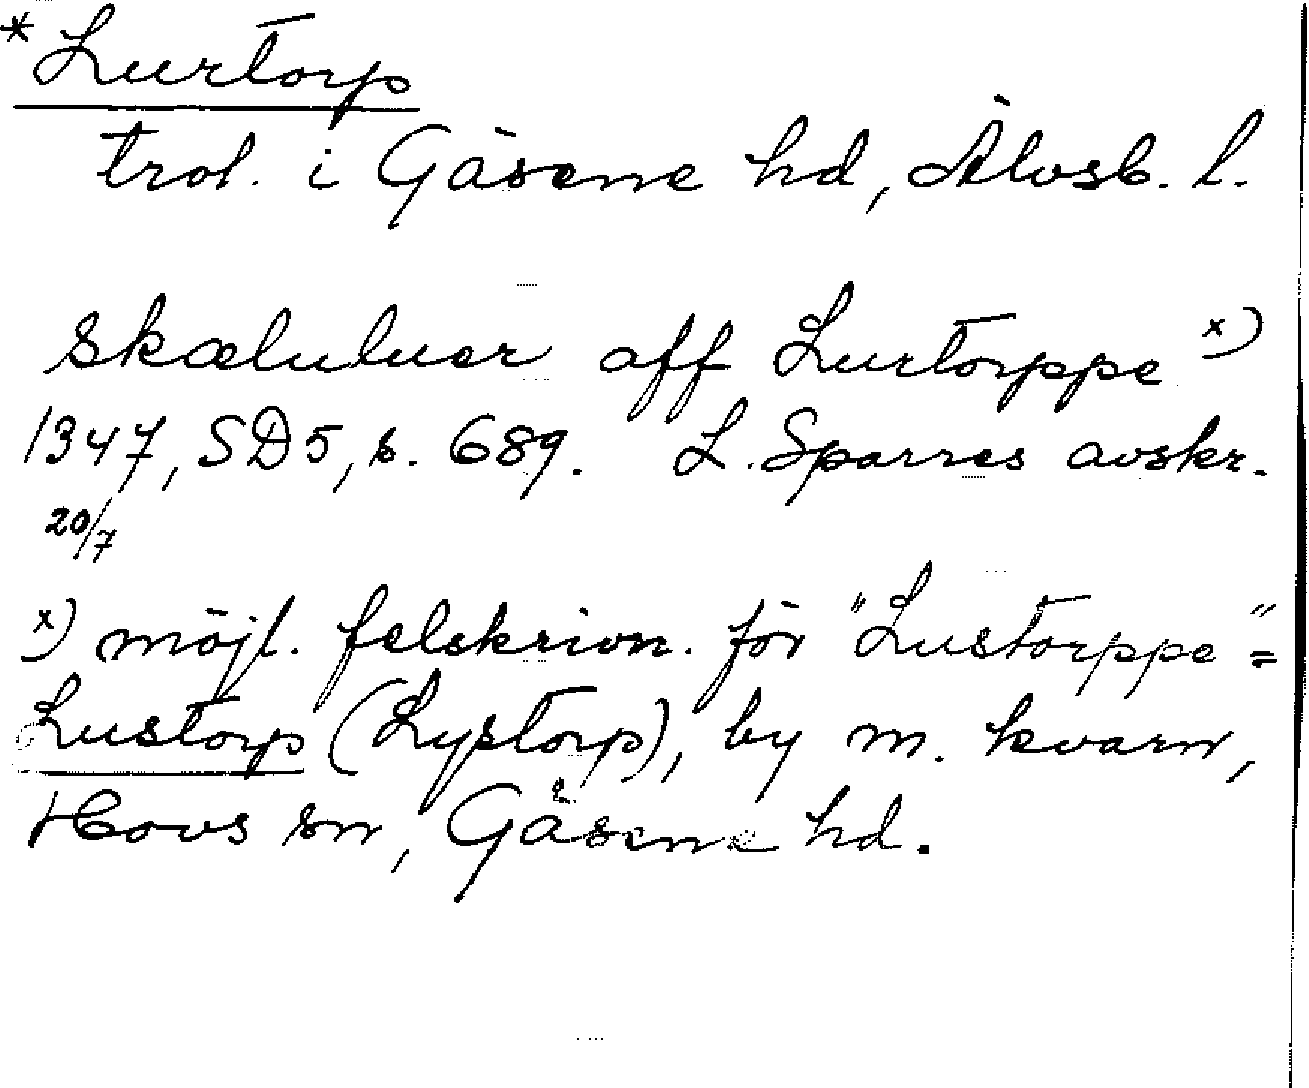 *Lurtorp
trol. i Gäsene hd, Älvsb. l.
skæluluer aff Lurtorppe x)
1347, SD5, s. 689. L. Sparres avskr.
20/7
x) möjl. felskrivn. för "Lustorppe" =
Lustorp (Lystorp), by m. kvarn,
Hovs sn, Gäsene hd.